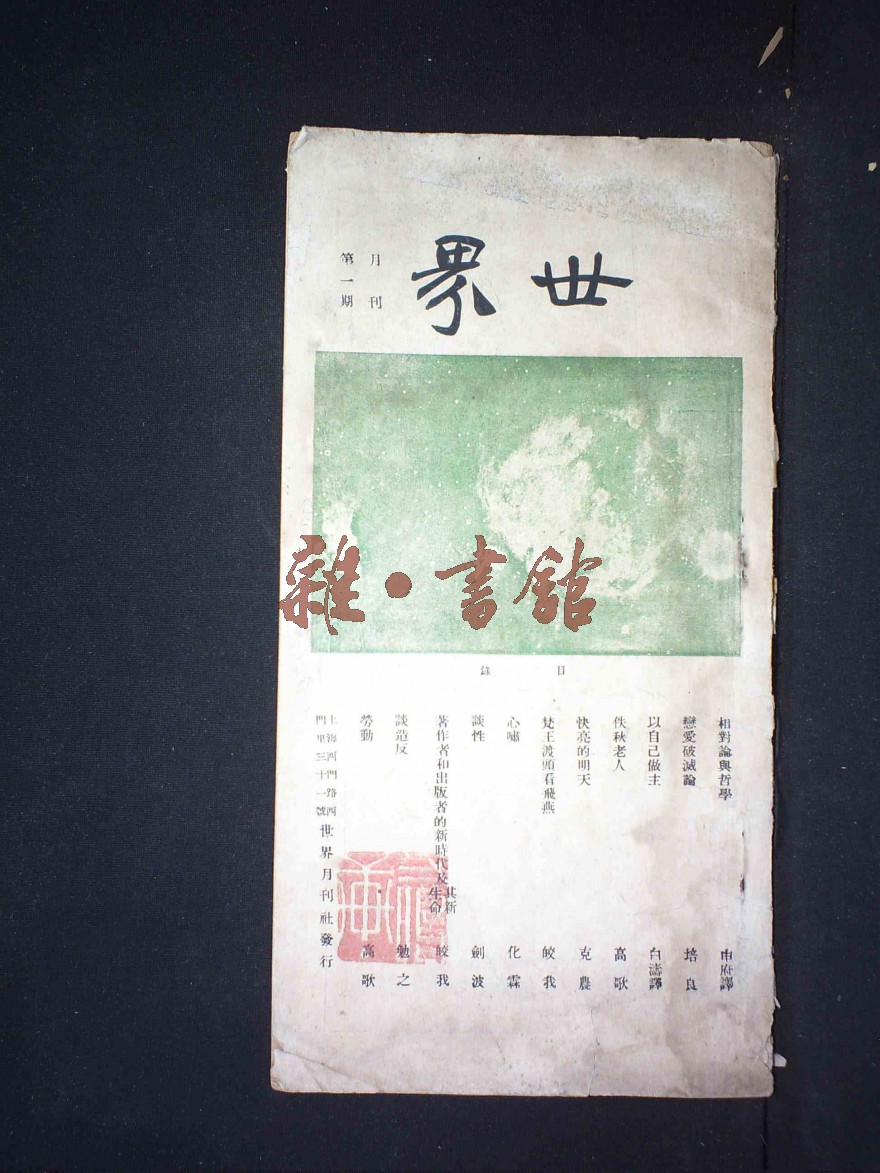 世界
月刊
第一期
雜·書館
目錄
相對論與哲學 申府譯
戀愛破滅論 培良
以自己做主 白濤譯
佚秋老人 高歌
快亮的明天 克農
梵王渡頭看飛燕 皎我
心嘯 化霖
談性 劍波
著作者和出版者的新時代及其新生命 皎我
談造反 勉之
勞動 高歌
上海西門路西門里三十一號世界月刊社發行